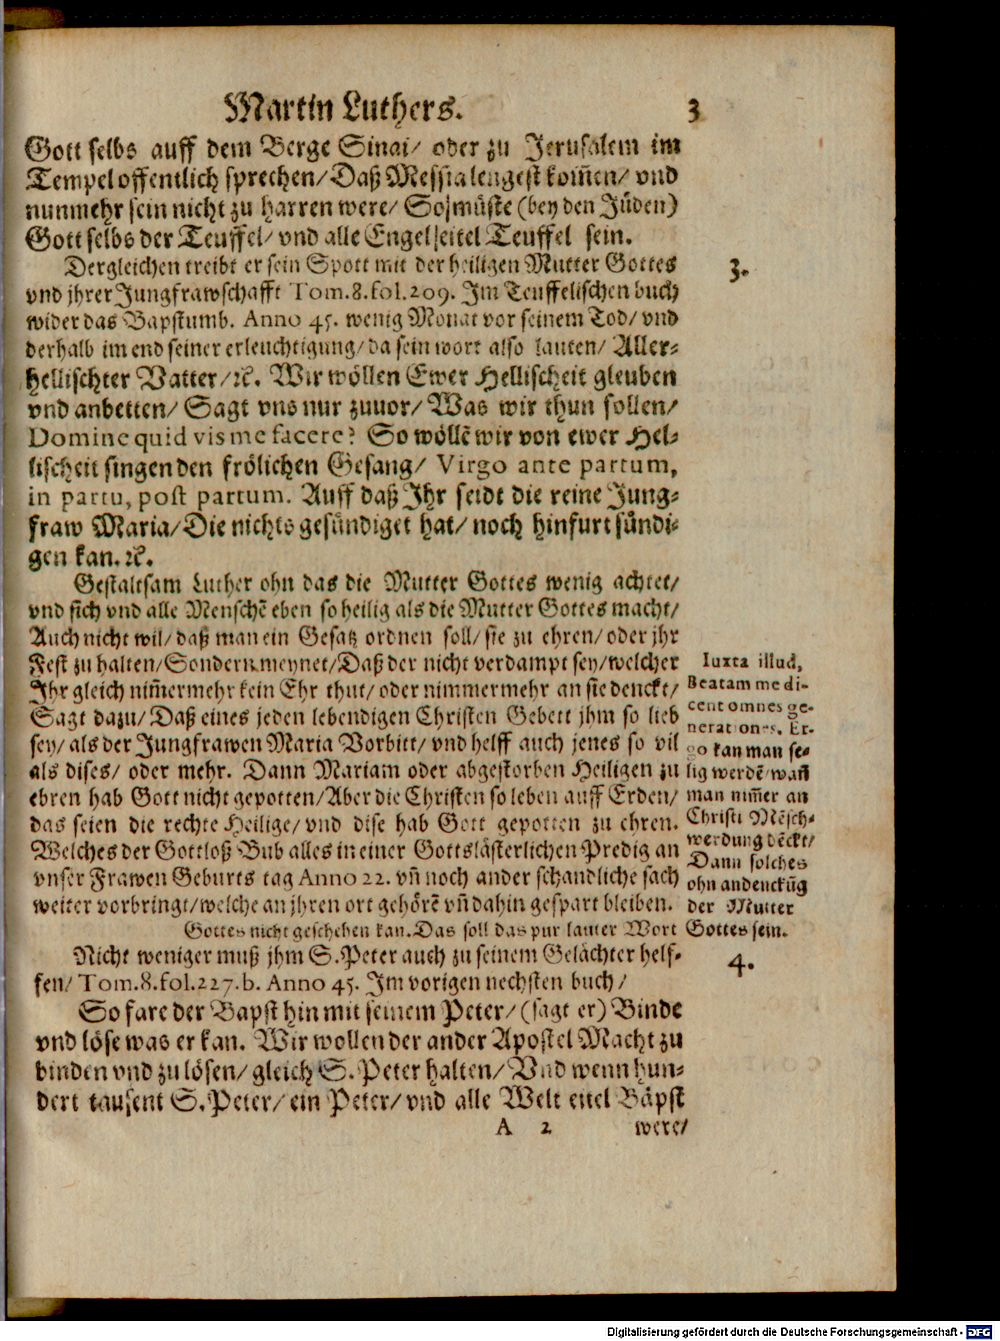 Martin Luthers. 3
Gott selbs auff dem Berge Sinai/ oder zu Jerusalem im
Tempel offentlich sprechen/ Daß Messia lengest kom̃en/ vnd
nunmehr sein nicht zu harren were/ So müste (bey den Jüden)
Gott selbs der Teuffel/ vnd alle Engel eitel Teuffel sein.
Dergleichen treibt er sein Spott mit der heiligen Mutter Gottes
vnd jhrer Jungfrawschafft Tom.8.fol.209. Im Teuffelischen buch
3.
wider das Bapstumb. Anno 45. wenig Monat vor seinem Tod/ vnd
derhalb im end seiner erleuchtigung/ da sein wort also lauten/ Aller-
hellischter Vatter/ ꝛc. Wir wöllen Ewer Hellischeit gleuben
vnd anbetten/ Sagt vns nur zuuor/ Was wir thun sollen/
Domine quid vis me facere? So wöllē wir von ewer Hel-
lischeit singen den frölichen Gesang/ Virgo ante partum,
in partu, post partum. Auff daß Ihr seidt die reine Jung-
fraw Maria/ Die nichts gesündiget hat/ noch hinfurt sündi-
gen kan. ꝛc.
Gestaltsam Luther ohn das die Mutter Gottes wenig achtet/
vnd sich vnd alle Menschē eben so heilig als die Mutter Gottes macht/
Auch nicht wil/ daß man ein Gesatz ordnen soll/ sie zu ehren/ oder jhr
Fest zu halten/ Sondern meynet/ Daß der nicht verdampt sey/ welcher
Ihr gleich nim̃ermehr kein Ehr thut/ oder nimmermehr an sie denckt/
Sagt dazu/ Daß eines jeden lebendigen Christen Gebett jhm so lieb
sey/ als der Jungfrawen Maria Vorbitt/ vnd helff auch jenes so vil
als dises/ oder mehr. Dann Mariam oder abgestorben Heiligen zu
ehren hab Gott nicht gepotten/ Aber die Christen so leben auff Erden/
das seien die rechte Heilige/ vnd dise hab Gott gepotten zu ehren.
Welches der Gottloß Bub alles in einer Gottslästerlichen Predig an
vnser Frawen Geburts tag Anno 22. vñ noch ander schandliche sach
weiter vorbringt/ welche an jhren ort gehörē vñ dahin gespart bleiben.
Iuxta illud,
Beatam me di-
cent omnes ge-
nerationes. Er-
go kan man se-
lig werdē/ wañ
man nim̃er an
Christi Mēsch-
werdung dēckt/
Dann solches
ohn andenckūg
der Mutter
Gottes nicht geschehen kan. Das soll das pur lauter Wort Gottes sein.
Nicht weniger muß jhm S. Peter auch zu seinem Gelächter helf-
4.
fen/ Tom.8.fol.227.b. Anno 45. Im vorigen nechsten buch/
So fare der Bapst hin mit seinem Peter/ (sagt er) Binde
vnd löse was er kan. Wir wollen der ander Apostel Macht zu
binden vnd zu lösen/ gleich S. Peter halten/ Vnd wenn hun-
dert tausent S. Peter/ ein Peter/ vnd alle Welt eitel Bäpst
A 2 were/
Digitalisierung gefördert durch die Deutsche Forschungsgemeinschaft - DFG